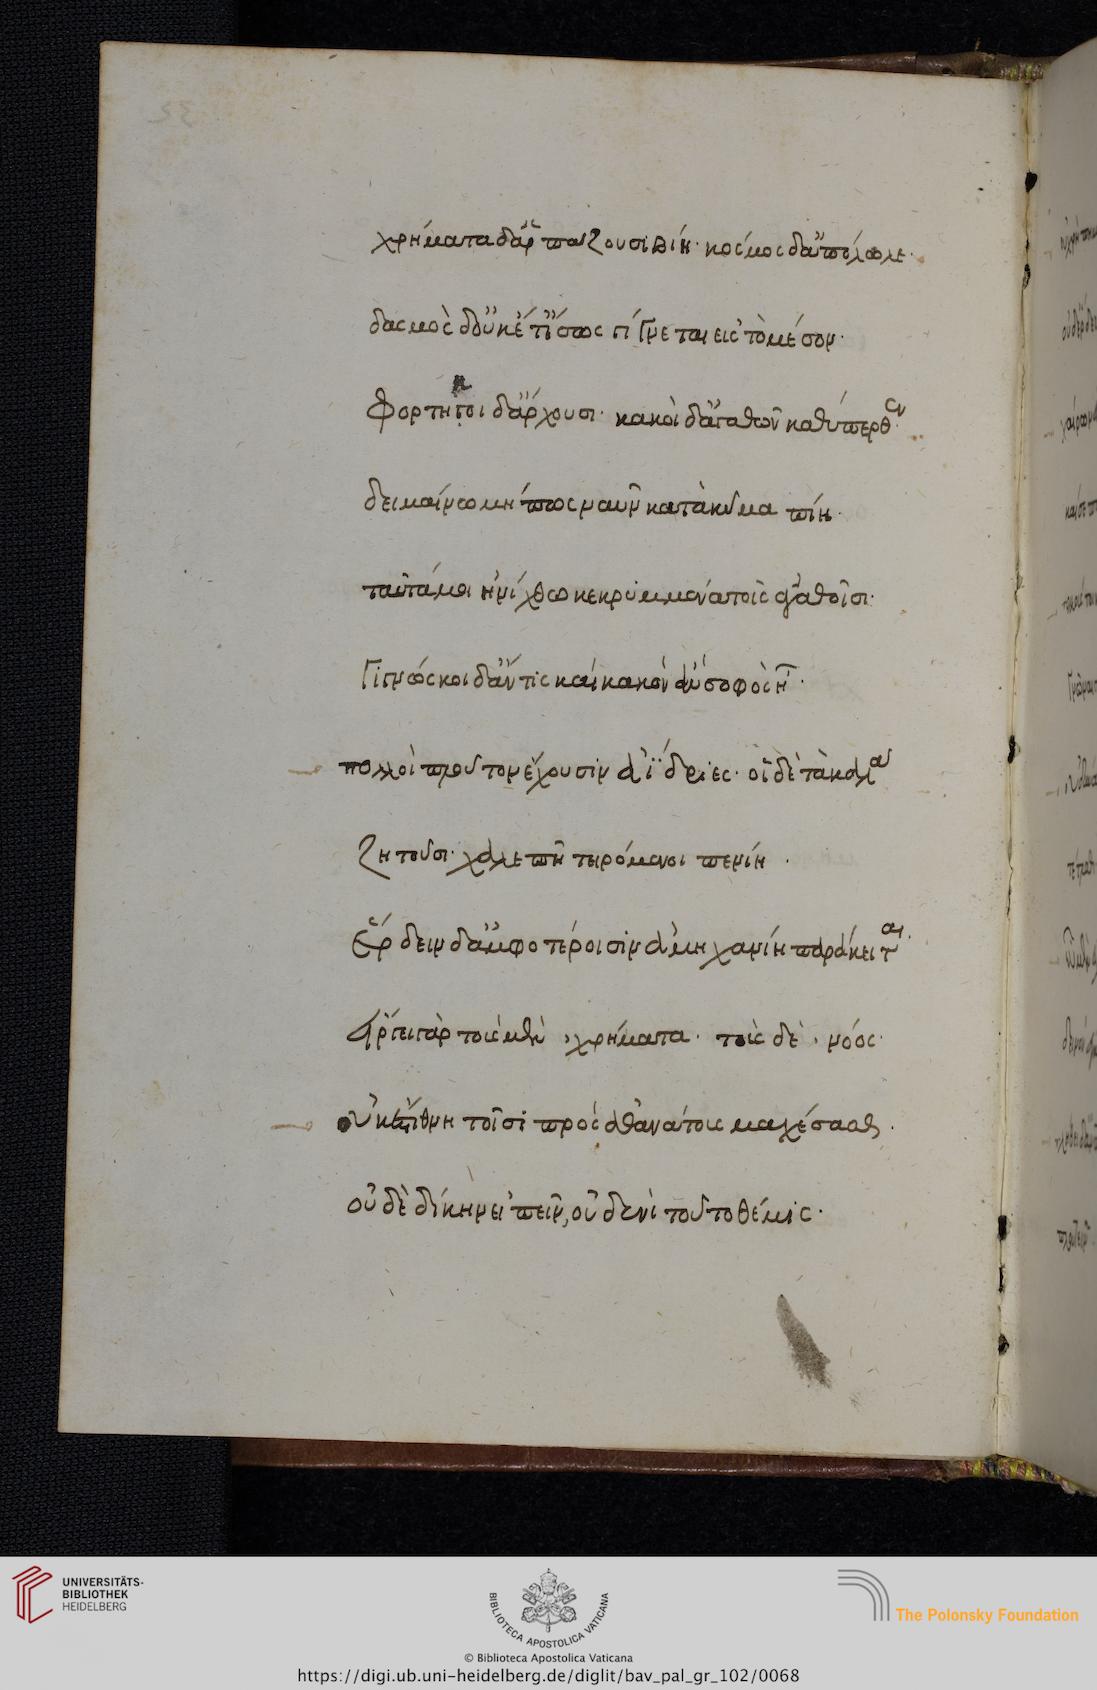 χρήματα δ' ἁρπάζουσι βίη· κόσμος δ' ἀπόλωλε·
δασμὸς δ' οὐκέτ' ἴσως γίγνεται εἰς τὸ μέσον·
φορτηγοὶ δ' ἄρχουσι· κακοὶ δ' ἀγαθῶν καθύπερθεν·
δειμαίνω μή πως ναῦν κατὰ κῦμα πίη·
ταῦτά μοι ἠνίχθω κεκρυμμένα τοῖς ἀγαθοῖσι·
γιγνώσκοι δ' ἄν τις καὶ κακὸν ἂν σοφὸς ἦ·
πολλοὶ πλοῦτον ἔχουσιν ἀΐδριες· οἳ δὲ τὰ καλὰ
ζητοῦσι· χαλεπῆ τειρόμενοι πενίη·
ἔρδειν δ' ἀμφοτέροισιν ἀμηχανίη παράκειται·
εἴργει γὰρ τοὺς μὲν χρήματα· τοὺς δὲ νόος·
οὐκ ἔστι θνητοῖσι πρὸς ἀθανάτους μαχέσασθαι·
οὐδὲ δίκην εἰπεῖν, οὐδενὶ τοῦτο θέμις·
UNIVERSITÄTS-
BIBLIOTHEK
HEIDELBERG
BIBLIOTECA APOSTOLICA VATICANA
The Polonsky Foundation
© Biblioteca Apostolica Vaticana
https://digi.ub.uni-heidelberg.de/diglit/bav_pal_gr_102/0068